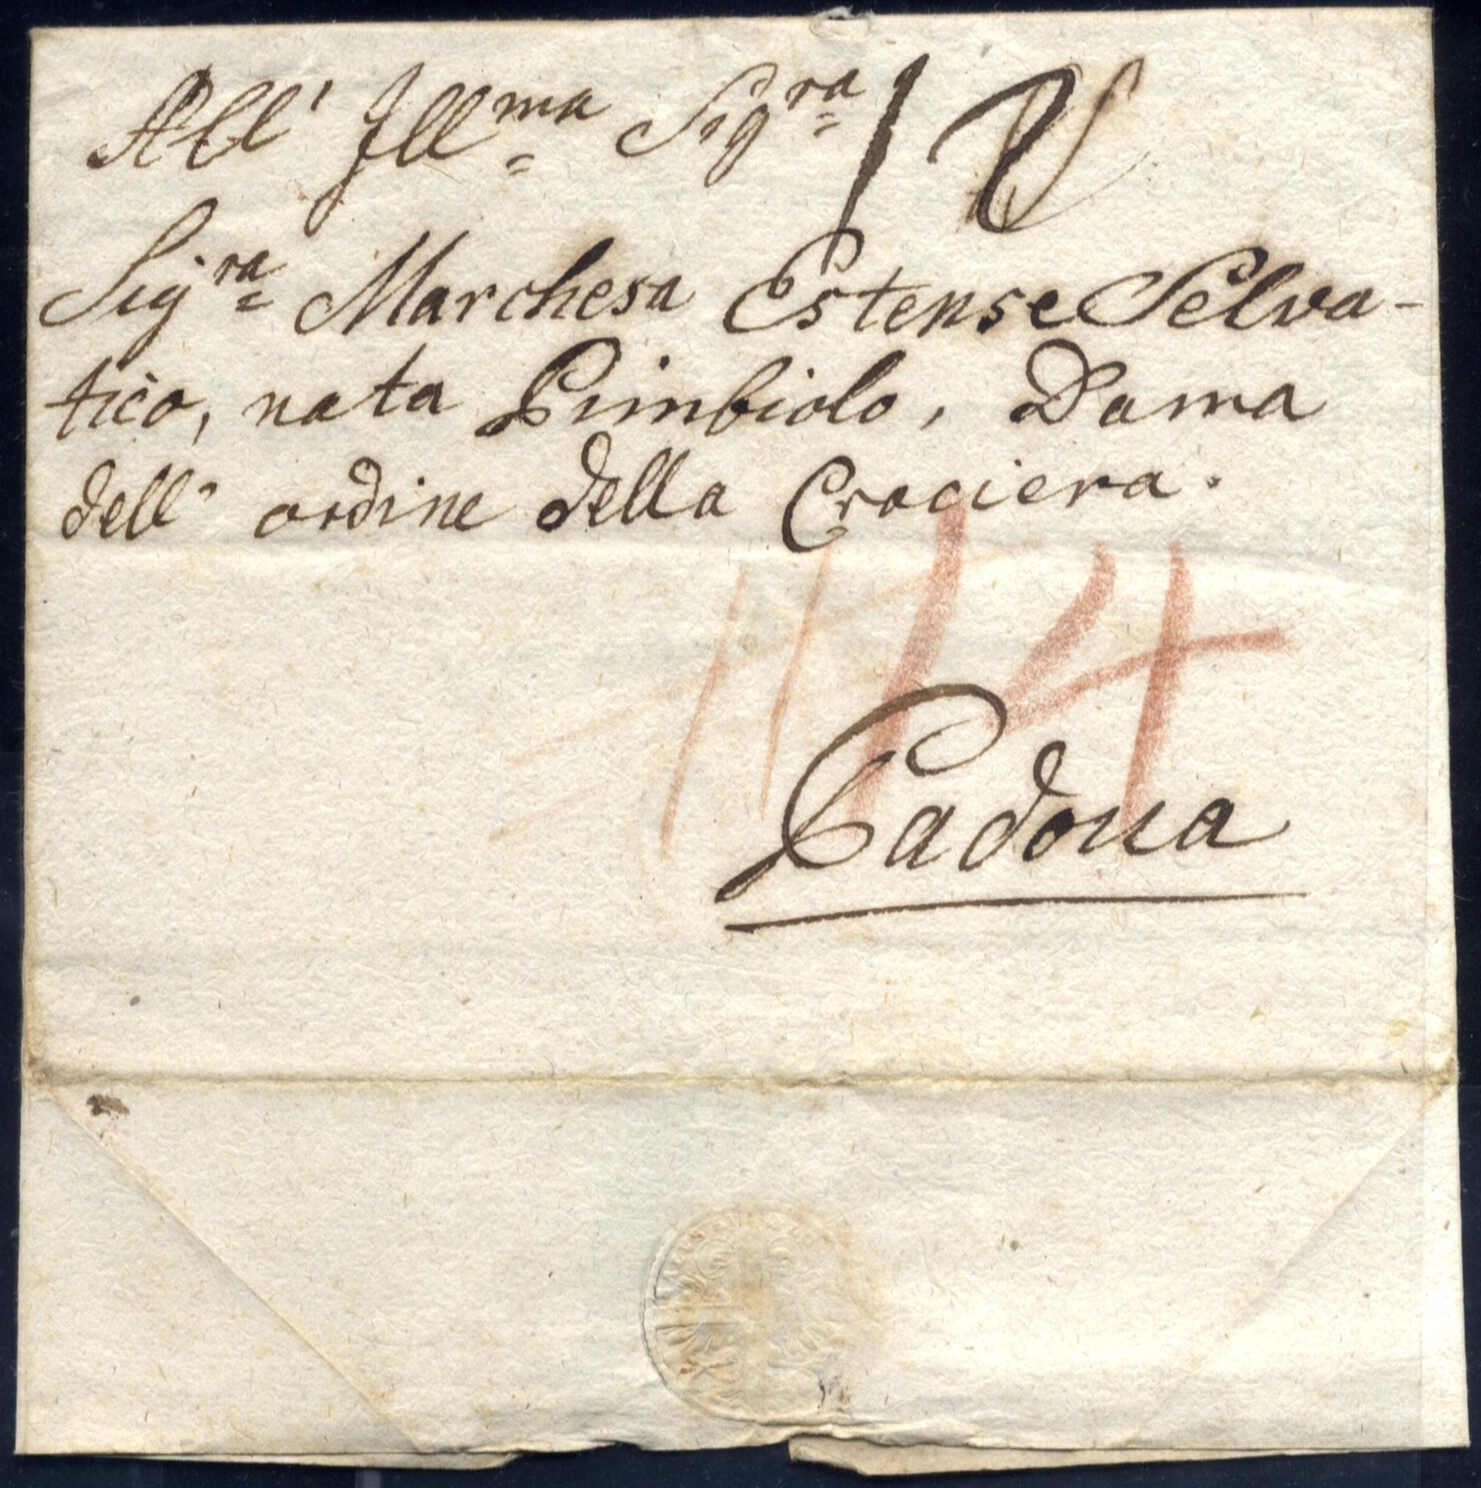 All' Ill.ma Sig.ra
Sig.ra Marchesa Estense Selva-
tico, nata Pimbiolo, Dama
dell' ordine della Crociera.
14
Padoua